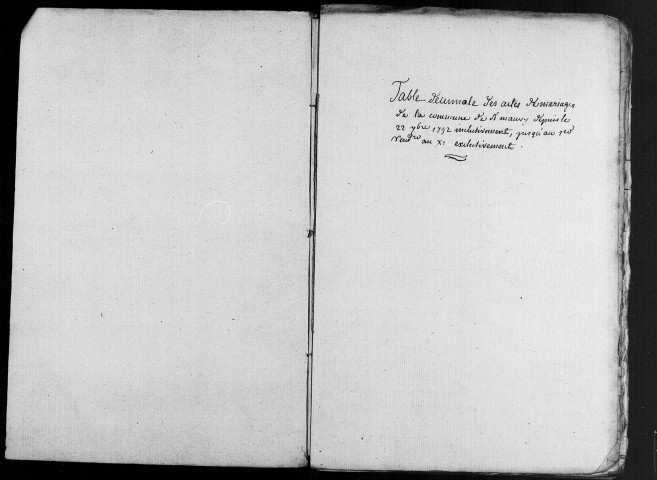 Table décennale des actes de mariages
de la commune de St maur, depuis le
22 7bre 1792 inclusivement, jusqu'au 1er
vendre an XI exclusivement.